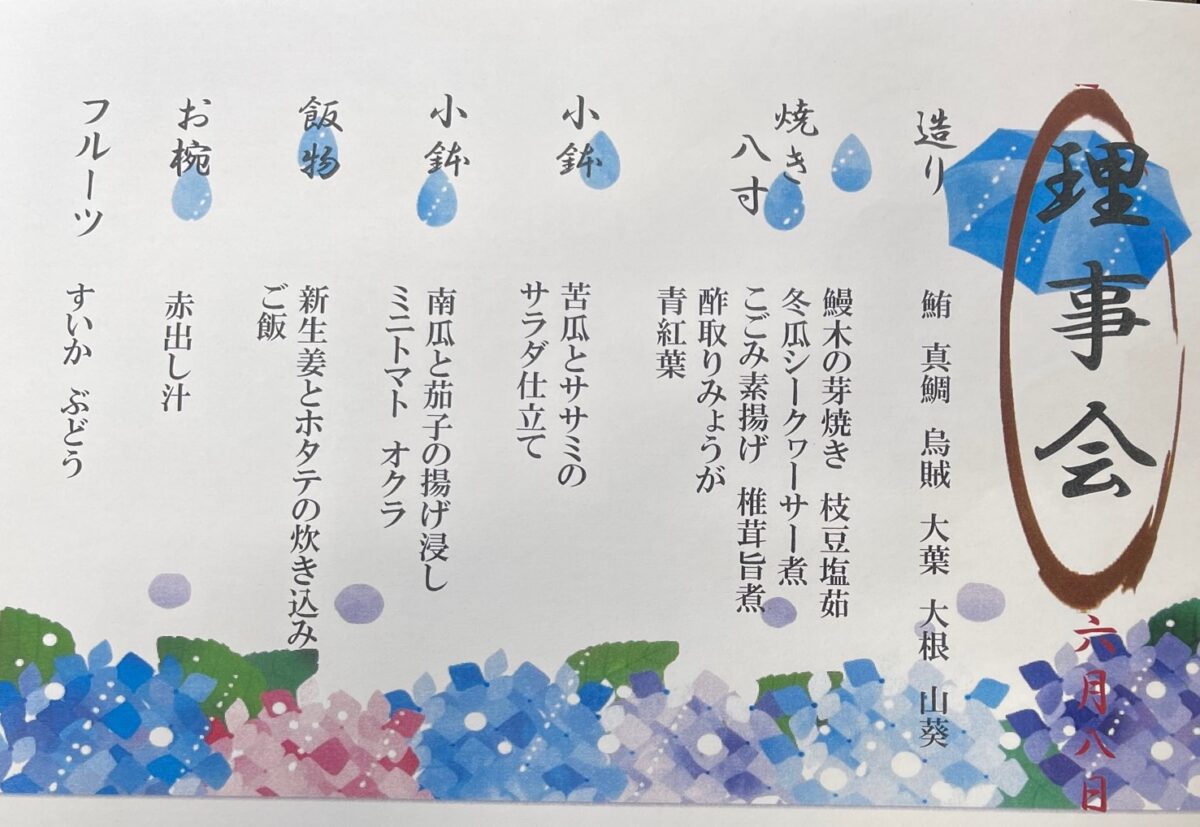 理事会
六月八日
造り
鮪 真鯛 烏賊 大葉 大根 山葵
焼き
八寸
鰻木の芽焼き 枝豆塩茹
冬瓜シークヮーサー煮
こごみ素揚げ 椎茸旨煮
酢取りみょうが
青紅葉
小鉢
苦瓜とササミの
サラダ仕立て
小鉢
南瓜と茄子の揚げ浸し
ミニトマト オクラ
飯物
新生姜とホタテの炊き込み
ご飯
お椀
赤出し汁
フルーツ
すいか ぶどう